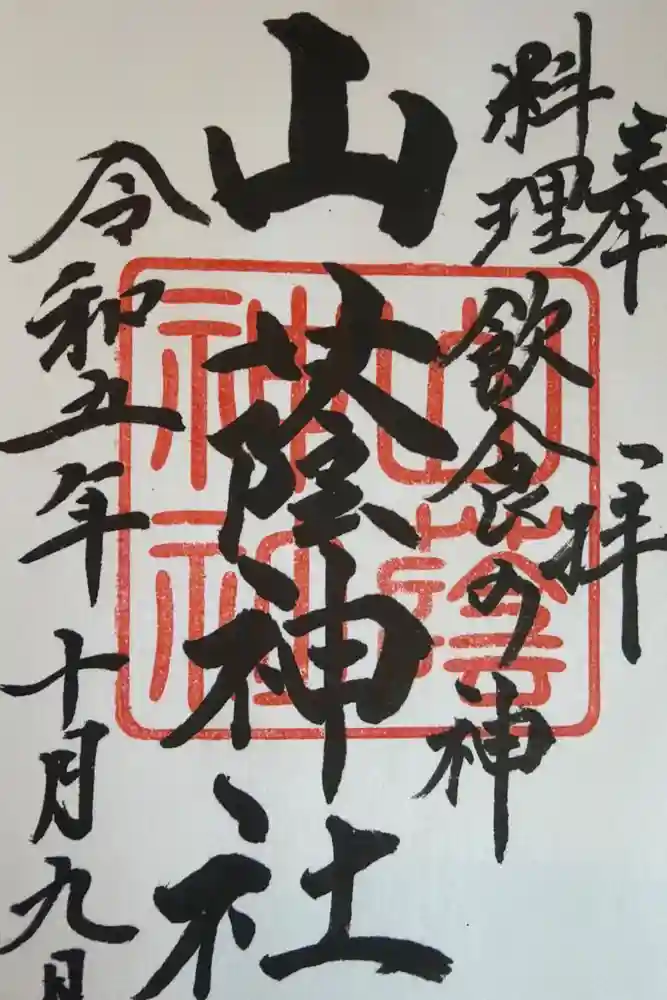 奉拝
料理飲食の神
山蔭神社
令和五年十月九日
山蔭
神社